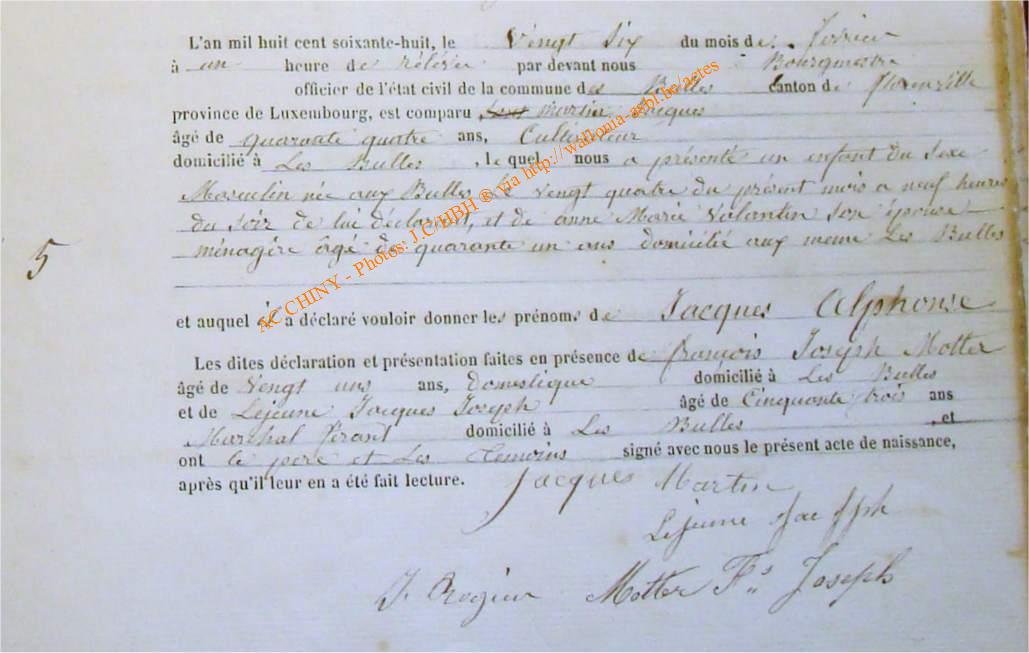 L'an mil huit cent soixante-huit, le Vingt Six du mois de
à un heure de rélévée par devant nous Bourgmestre
officier de l'état civil de la commune des Bulles canton de Florenville
province de Luxembourg, est comparu Martin Jacques
âgé de quarante quatre ans, Cultivateur
domicilié à Les Bulles , le quel nous a présenté un enfant du Sexe
Masculin née aux Bulles Le Vingt quatre du présent mois a neuf heures
du Soir de lui déclarant, et de anne Marie Valantin son épouse
ménagère âgé de quarante un ans domicilié aux meme Les Bulles
5
et auquel il a déclaré vouloir donner les prénoms de Jacques Alphonse
Les dites déclaration et présentation faites en présence de françois Joseph Motter
âgé de Vengt uns ans, Domestique domicilié à Les Bulles
et de Lejeune Jacques Joseph âgé de Cinquante trois ans
Maréchal férant domicilié à Les Bulles , et
ont le pere et Les Temoins signé avec nous le présent acte de naissance,
après qu'il leur en a été fait lecture. Jacques Martin
Lejeune Jac Jph
Motter Fs Joseph
AC CHINY - Photos: J.C/HBH ® via http://wallonia-asbl.be/actes